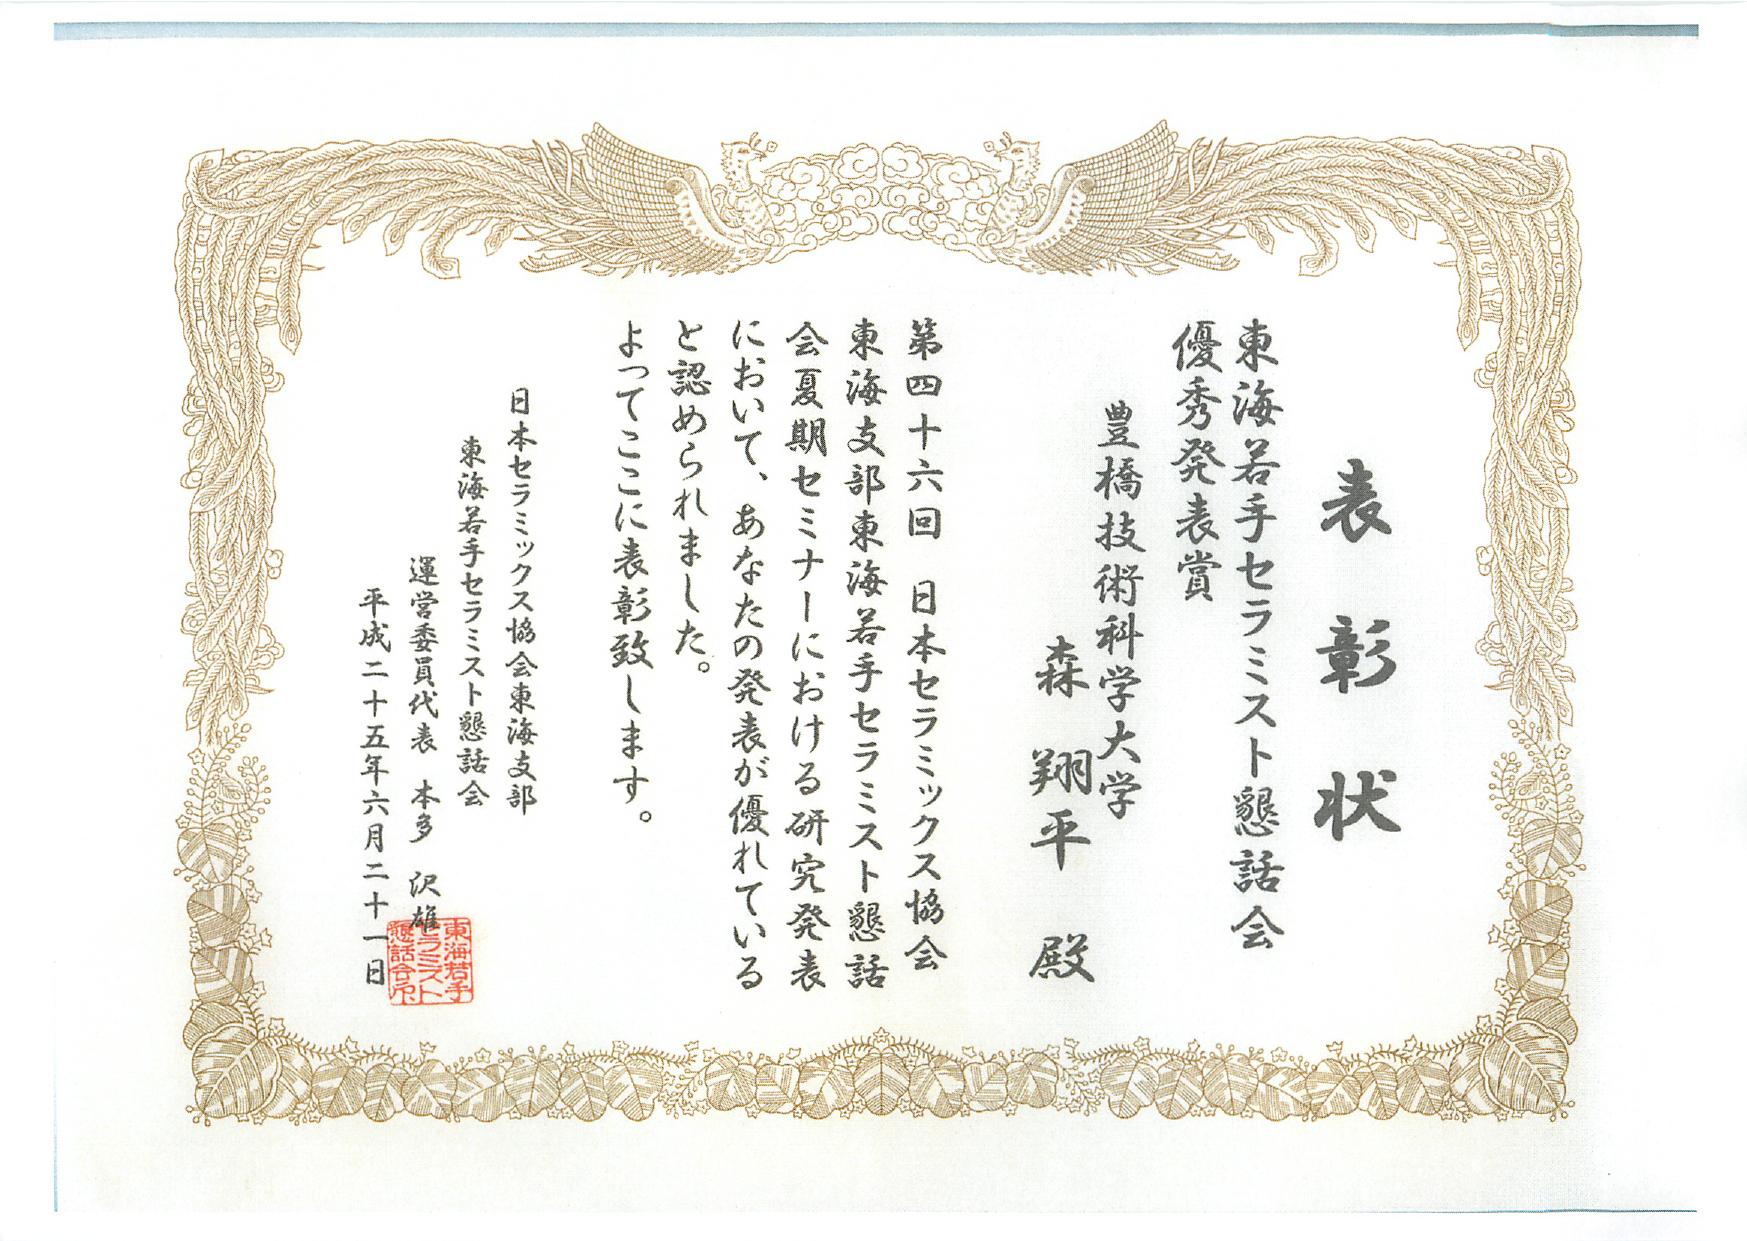 表彰状
東海若手セラミスト懇話会
優秀発表賞
豊橋技術科学大学
森 翔平 殿
第四十六回 日本セラミックス協会
東海支部東海若手セラミスト懇話
会夏期セミナーにおける研究発表
において、あなたの発表が優れている
と認められました。
よってここに表彰致します。
日本セラミックス協会東海支部
東海若手セラミスト懇話会
運営委員代表 本多 沢雄
平成二十五年六月二十一日
東海若手
セラミスト
懇話会印